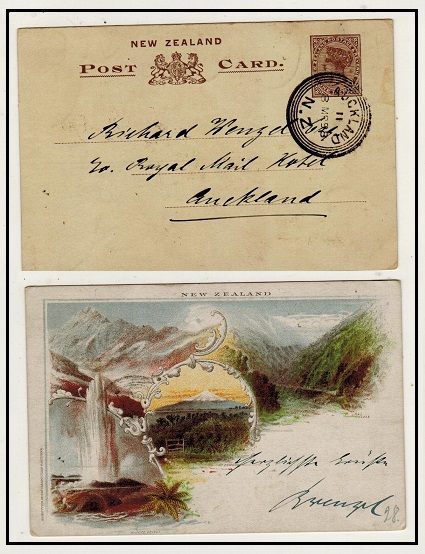 NEW ZEALAND
POST CARD.
AUCKLAND
N.Z
Richard Wenzel
Co. Royal Mail Hotel
Auckland
NEW ZEALAND
Herzlichste Grüsse
RWenzel
28.